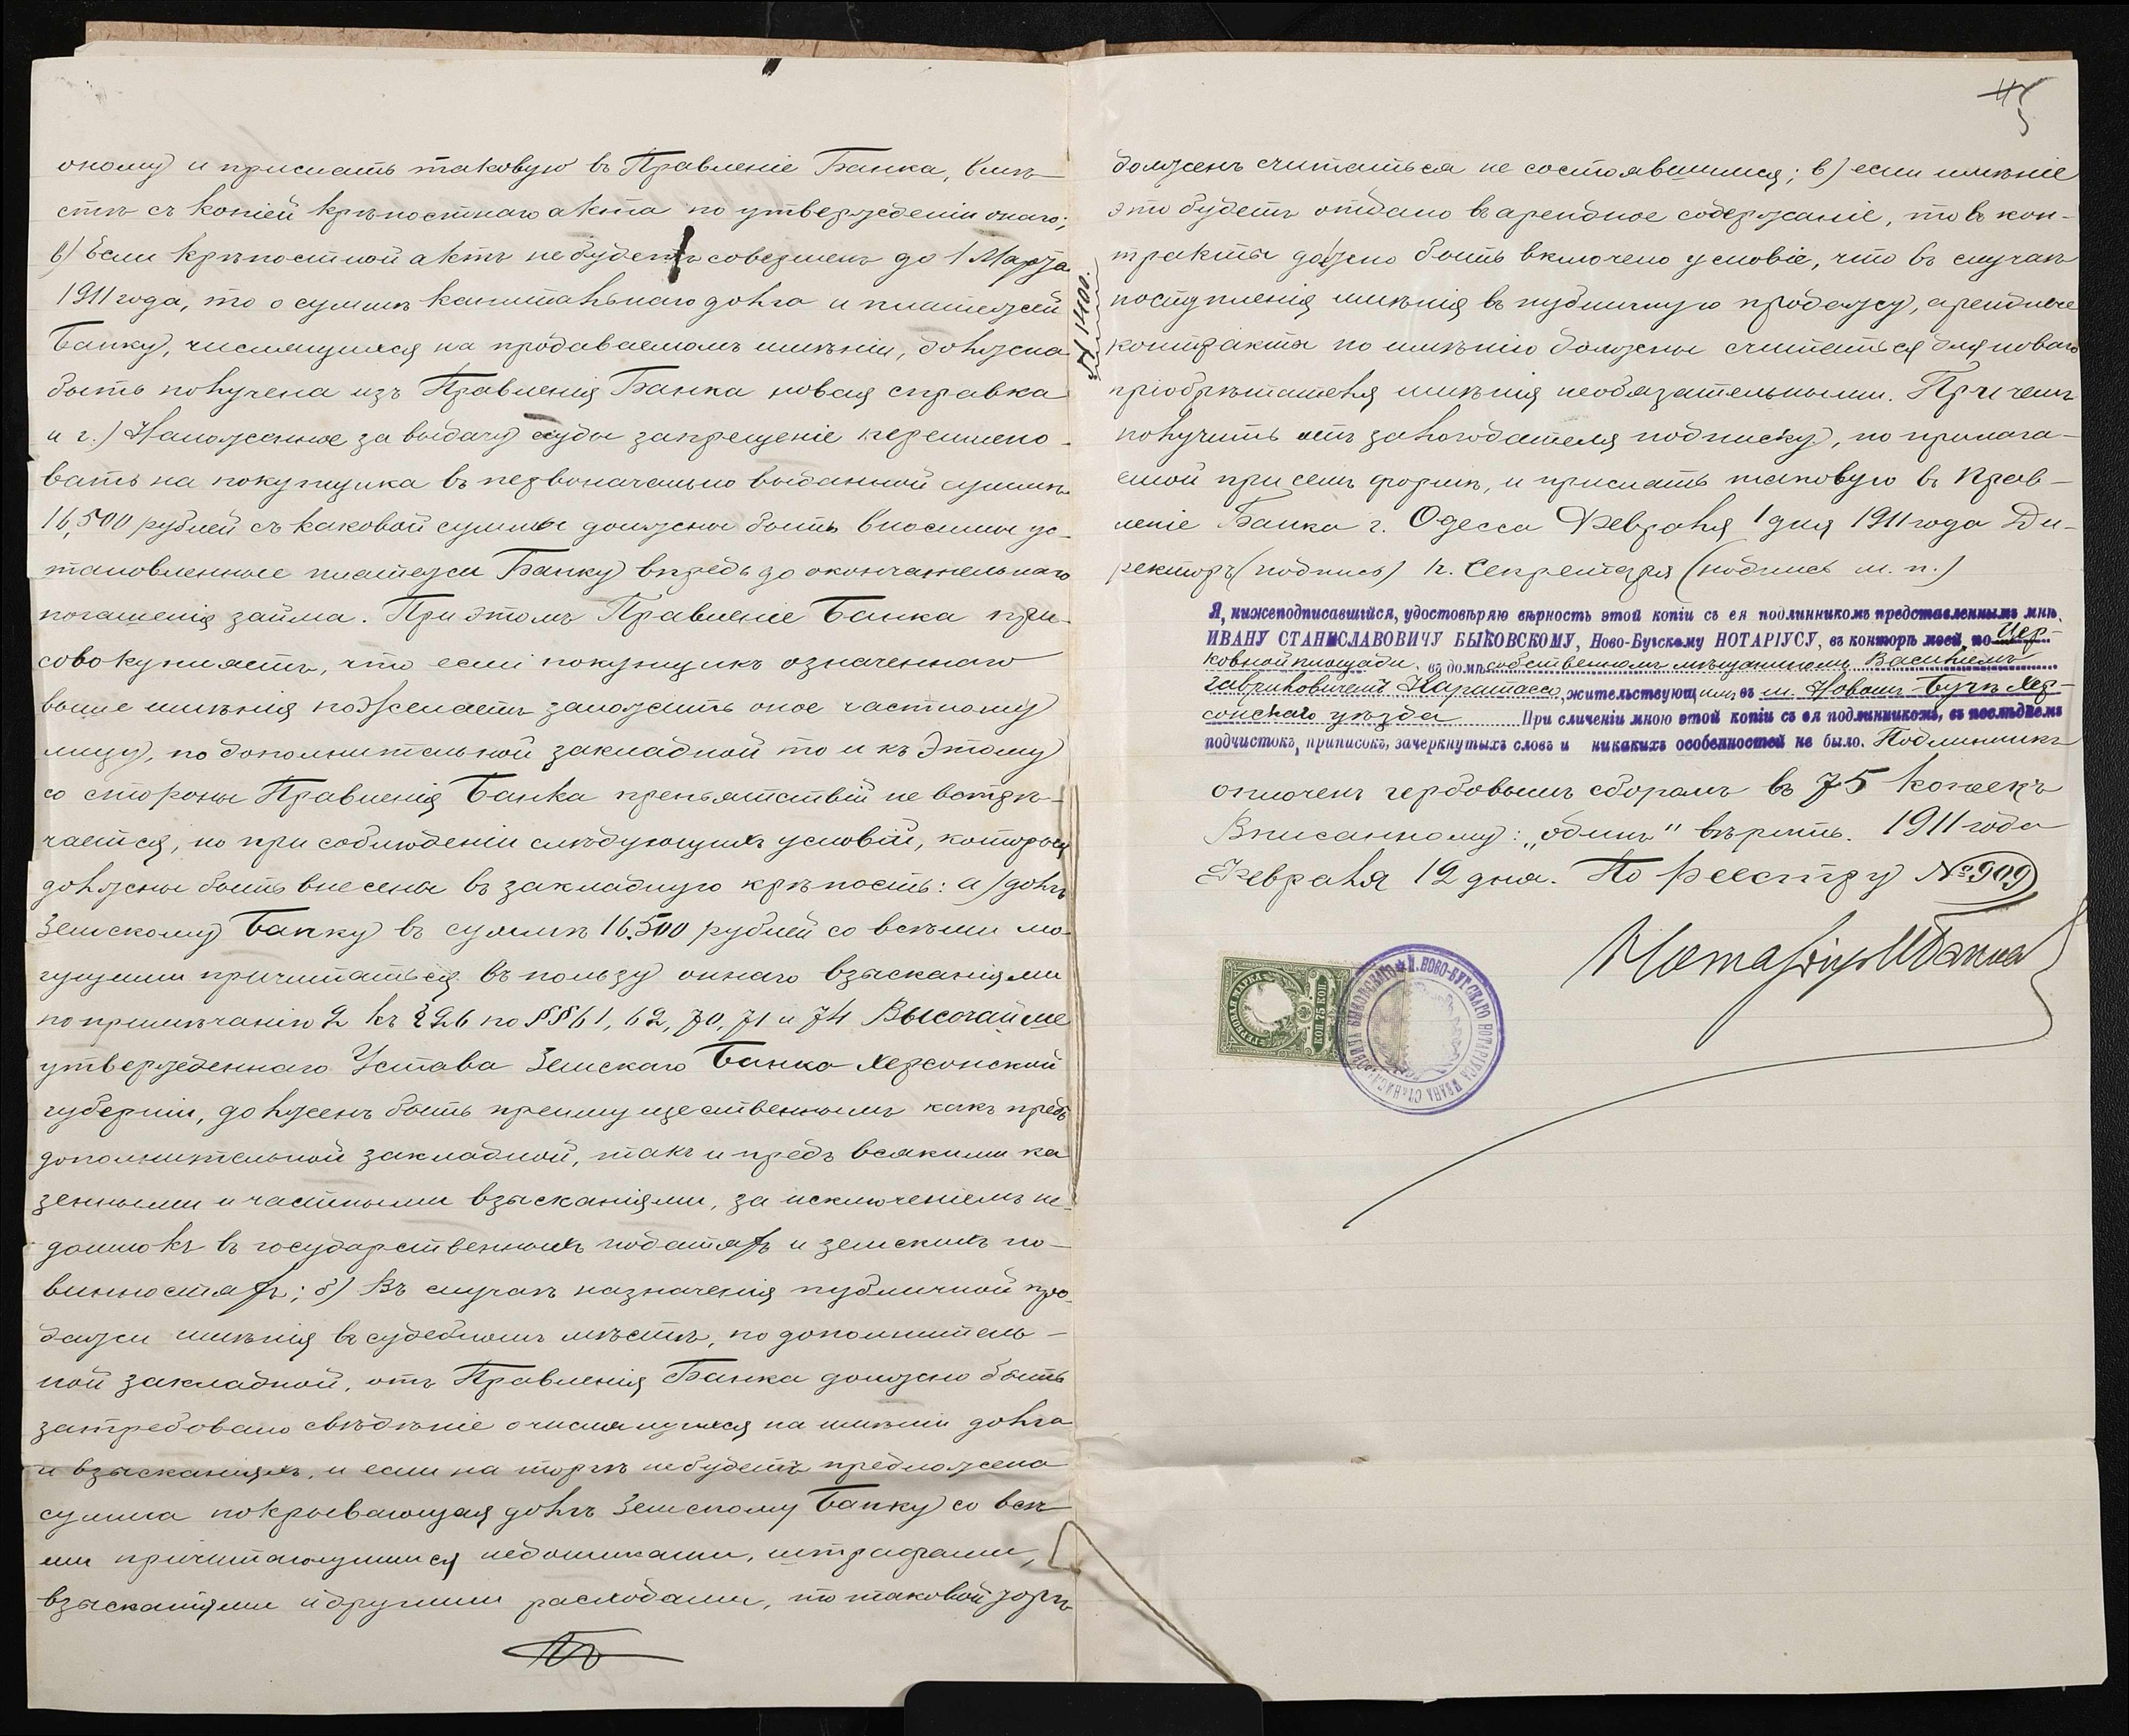 оному и прислать таковую въ Правленіе Банка, вмѣ-
стѣ съ копіей крѣпостнаго акта по утвержденіи онаго;
в) Если крѣпостной актъ не будетъ совершенъ до 1 Марта
1911 года, то о суммѣ капитальнаго долга и платежей
Банку, числящихся на продаваемомъ имѣніи, должна
быть получена изъ Правленія Банка новая справка
и г.) Наложенное за выдачу ссуды запрещеніе переимено-
вать на покупщика въ первоначально выданной суммѣ
16,500 рублей съ каковой суммы должны быть вносимы ус-
тановленные платежи Банку впредь до окончательнаго
погашенія займа. При этомъ Правленіе Банка при-
совокупляетъ, что если покупщикъ означеннаго
выше имѣнія пожелаетъ заложить оное частному
лицу, по дополнительной закладной то и къ этому
со стороны Правленія Банка препятствій не встрѣ-
чается, но при соблюденіи слѣдующихъ условій, которыя
должны быть внесены въ закладную крѣпость: а) долгъ
Земскому Банку въ суммѣ 16.500 рублей со всѣми мо-
гущими причитаться въ пользу оннаго взысканіями
по примѣчанію 2 къ § 26 по §§ 61, 62, 70, 71 и 74 Высочайше
утвержденнаго Устава Земскаго Банка Херсонской
губерніи, долженъ быть преимущественнымъ какъ предъ
дополнительной закладной, такъ и предъ всякими ка
зенными и частными взысканіями, за исключеніемъ не-
доимокъ въ государственныхъ податяхъ и земскихъ по-
винностяхъ; б) Въ случаѣ назначенія публичной про-
дажи имѣнія въ судебномъ мѣстѣ, по дополнитель-
ной закладной, отъ Правленія Банка должно быть
затребовано свѣдѣніе о числящихся на имѣніи долга
и взысканіяхъ, и если на торгѣ не будетъ предложена
сумма покрывающая долгъ Земскому Банку со всѣ
ми причитающимися недоимками, штрафами,
взысканіями и другими расходами, то таковой торгъ
долженъ считаться не состоявшимся; в) если имѣніе
это будетъ отдано въ арендное содержаніе, то въ кон-
тракты должно быть включено условіе, что въ случаѣ
поступленія имѣнія въ публичную продажу, арендные
контракты по имѣнію должны считаться для новаго
пріобрѣтателя имѣнія необязательными. При чемъ
получить отъ залогодателя подписку, по прилага-
емой при семъ формѣ, и прислать таковую въ Прав-
леніе Банка г. Одесса Февраля 1 дня 1911 года Ди-
ректоръ (подпись) п. Секретаря (подпись м. п.)
Я, нижеподписавшійся, удостовѣряю вѣрность этой копіи съ ея подлинникомъ представленнымъ мнѣ,
ИВАНУ СТАНИСЛАВОВИЧУ БЫКОВСКОМУ, Ново-Бугскому НОТАРІУСУ, въ конторѣ моей, по Цер-
ковной площади, въ домѣ собственномъ мѣщаниномъ Василіемъ
Гавриловичемъ, жительствующимъ въ м. Новомъ Бугѣ Хер-
сонскаго уѣзда При сличеніи мною этой копіи съ ея подлинникомъ, въ послѣднемъ
подчистокъ, приписокъ, зачеркнутыхъ словъ и никакихъ особенностей не было. Подлинникъ
оплоченъ гербовымъ сборомъ въ 75 копѣекъ
Вписанному: „одинъ" вѣрить. 1911 года
Февраля 12 дня. По реестру № 909
Нотаріусъ
ГЕРБОВАЯ МАРКА
75 КОП
Н. НОВО-БУГСКАГО НОТАРІУСА ИВАНА СТАНИСЛАВОВИЧА БЫКОВСКАГО